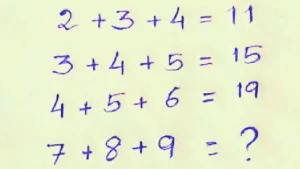 2 + 3 + 4 = 11
3 + 4 + 5 = 15
4 + 5 + 6 = 19
7 + 8 + 9 = ?